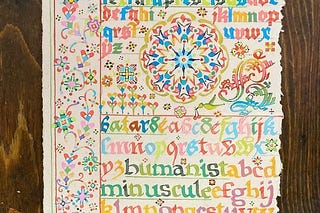 defghi jklmnop
qrst uvwx
yz
Batarde abcdefghijk
lmnopqrstuvwx
yz humanist abcd
minuscule efghij